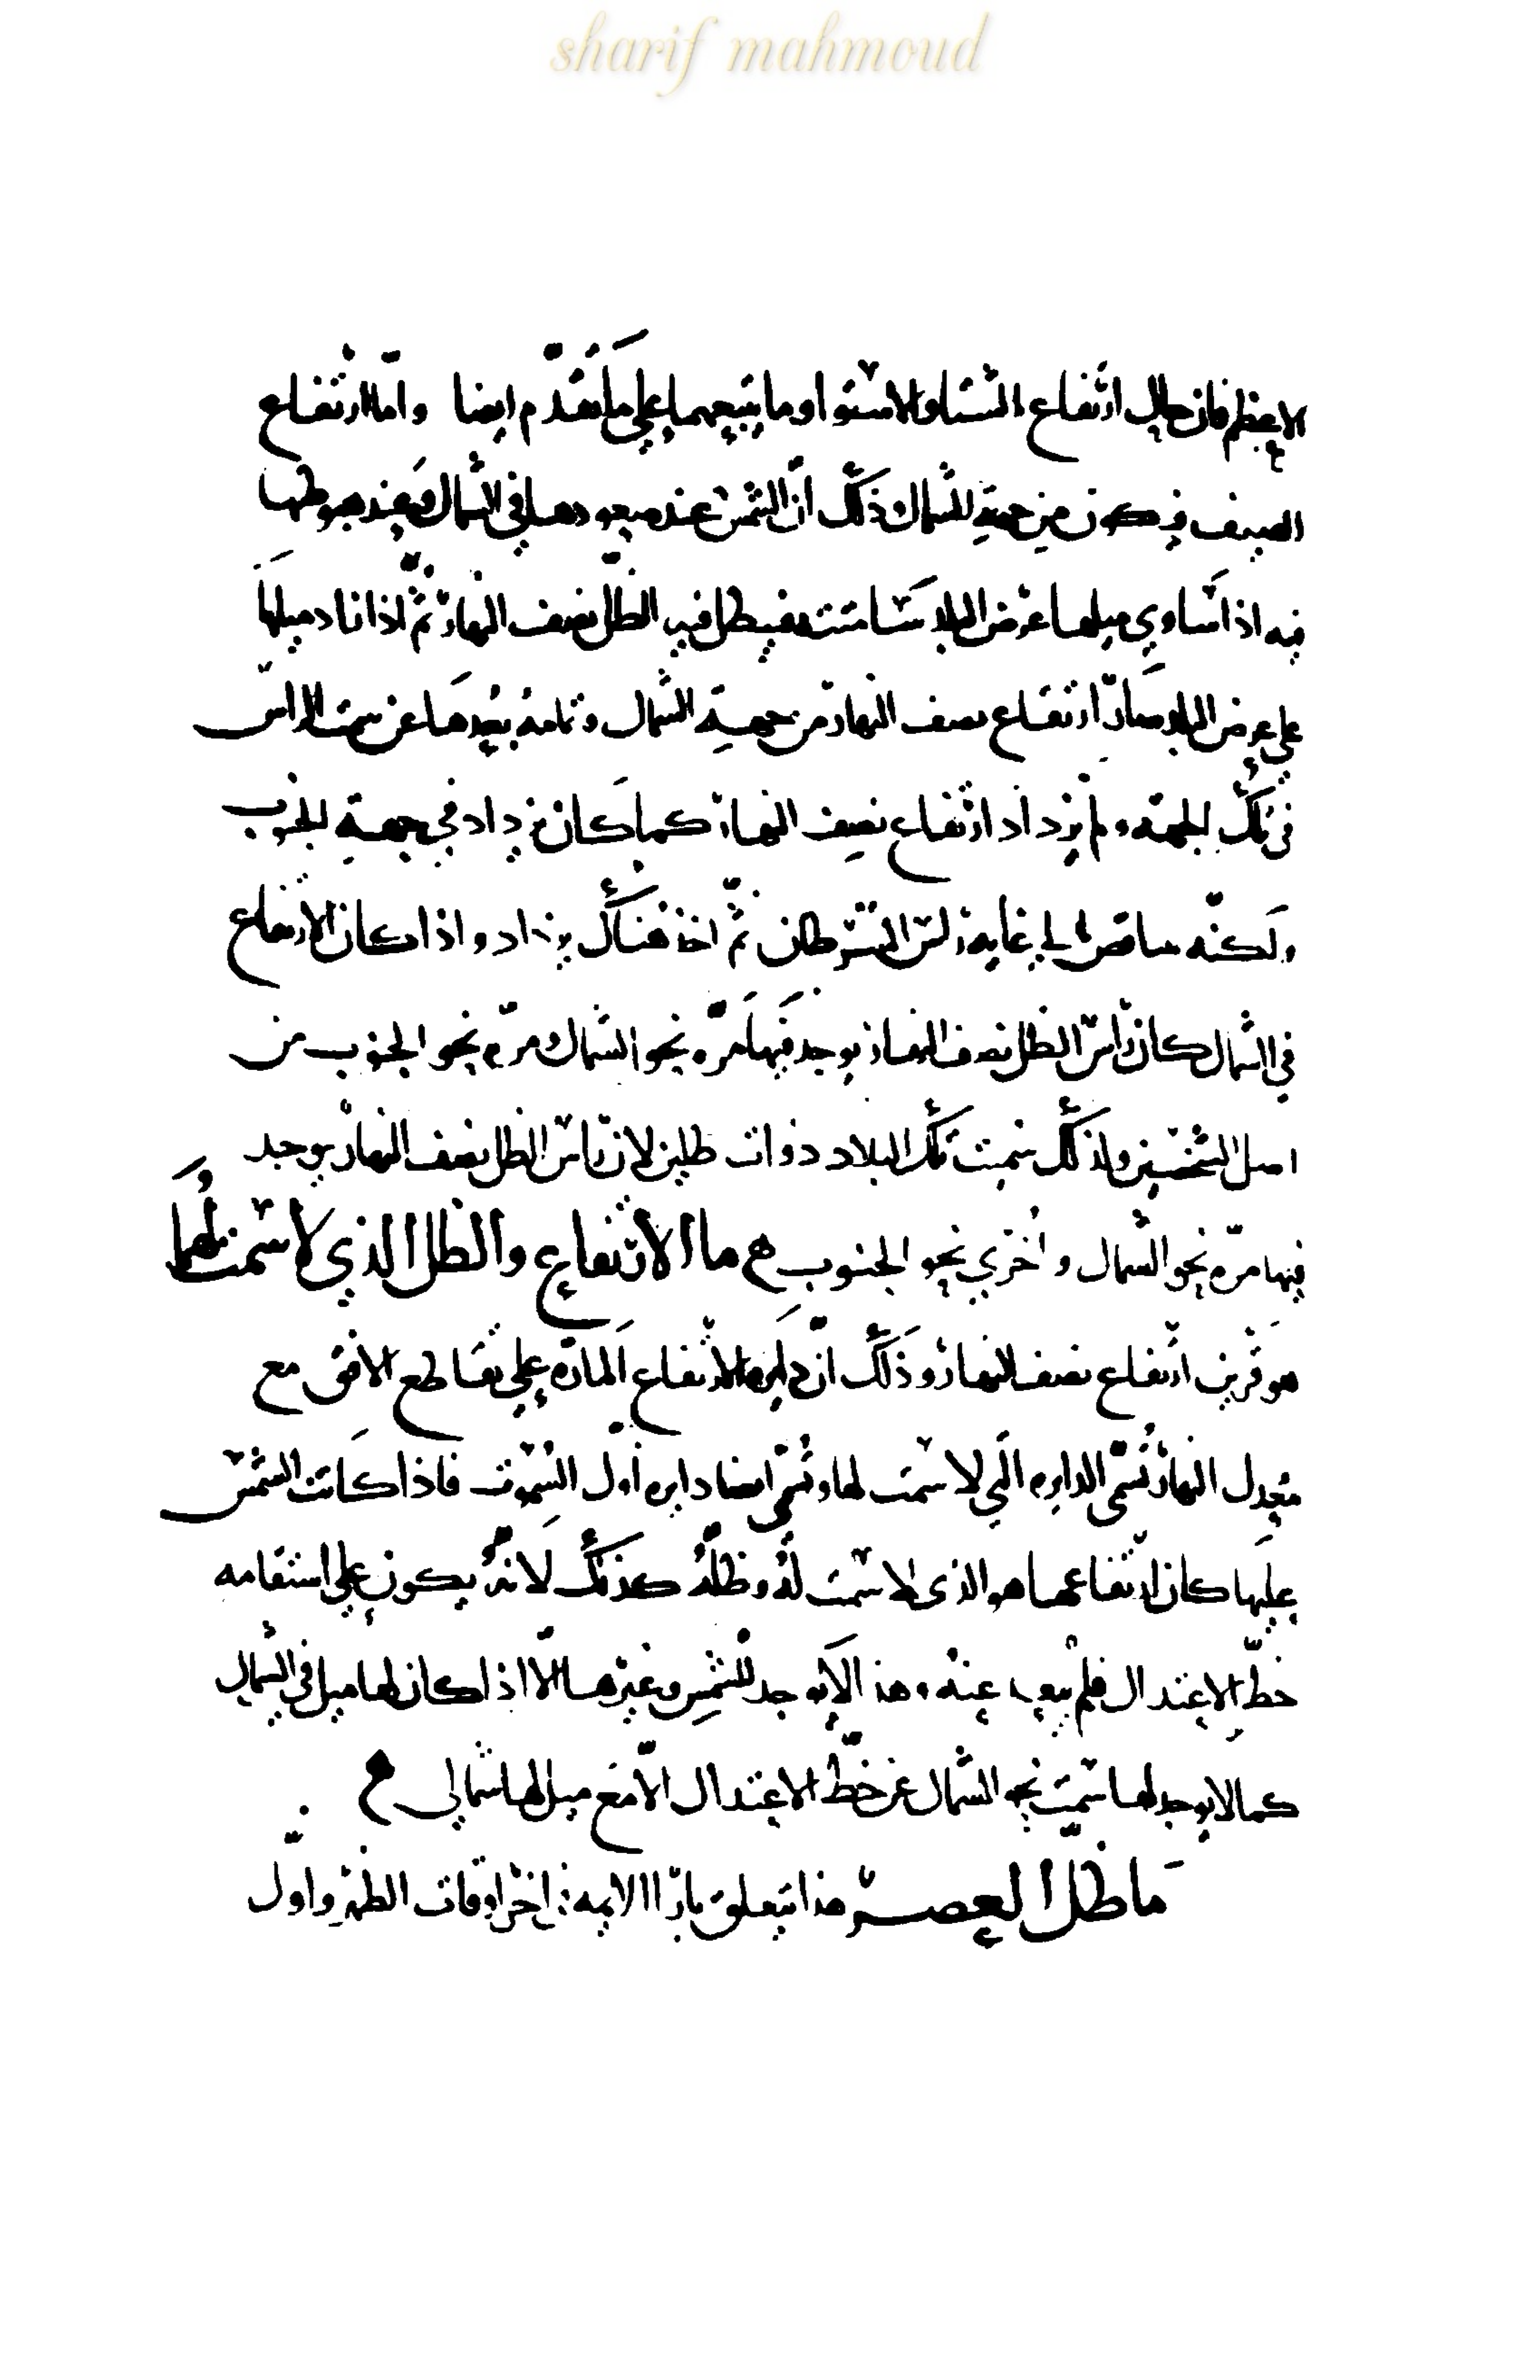 sharif mahmoud
الاعظم فان حال ارتفاع الشتا والاستوا وما يتبعهما علي ما تقدّم ايضا وامّا ارتفاع
الصيف فيكون من جهة الشمال وذلك انّ الشمس عند صعودها في الشمال وعند هبوطها
فيه اذا ساوي ميلها عرض البلد سامتت فيه الظلّ نصف النهار ثمّ اذا زاد ميلها
علي عرض البلد صار ارتفاع نصف النهار من جهة الشمال وتمامه بعدها عن سمت الراس
في تلك الجهة ولم يزدد ارتفاع نصف النهار كما كان يزداد في جهة الجنوب
ولكنّه تناقص الي غاية راس السرطان ثمّ اخذ هناك يزداد واذا كان الارتفاع
في الشمال كان راس الظل نصف النهار يوجد فيها مرّة نحو الشمال ومرّه نحو الجنوب من
اصل الشخص ولذلك سميت تلك البلاد ذوات ظلين لان راس الظل نصف النهار يوجد
فيها مرّه نحو الشمال واخري نحو الجنوب ما الارتفاع والظل الذي لا سمت لهما
هو قرين ارتفاع نصف النهار وذلك انّ دايره الارتفاع المارّة علي تقاطع الافق مع
معدل النهار تسمّي الدايره الّتي لا سمت لها وتسمّي ايضا دايره اوّل السموت فاذا كانت الشمس
عليها كان ارتفاعها هو الذي لا سمت له وظلّه كذلك لانه يكون علي استقامه
خطّ الاعتدال فلم عنه وهذا لا يوجد للشمس وغيرها الّا اذا كان لها ميل في الشمال
كما لا يوجد لها سمت نحو الشمال عن خطّ الاعتدال الّا مع ميل لها شمالي
ما ظلّ العصر هذا يتعلق بارا الايمه في اخر اوقات الظهر واوّل